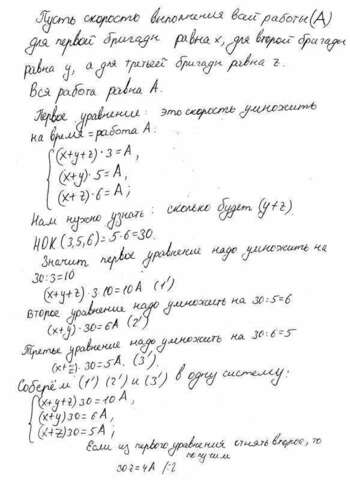 Пусть скорость выполнения всей работы (А)
для первой бригады равна x, для второй бригады
равна y, а для третьей бригады равна z.
Вся работа равна А.
Первое уравнение: это скорость умножить
на время = работа А:
(x+y+z)·3=A,
(x+y)·5=A,
(x+z)·6=A;
Нам нужно узнать: сколько будет (y+z)
НОК(3,5,6)=5·6=30.
Значит первое уравнение надо умножить на
30:3=10
(x+y+z)·3·10=10A (1')
Второе уравнение надо умножить на 30:5=6
(x+y)·30=6A (2')
Третье уравнение надо умножить на 30:6=5
(x+z)·30=5A. (3').
Соберём (1') (2') и (3') в одну систему:
(x+y+z)30=10A,
(x+y)30=6A,
(x+z)30=5A;
Если из первого уравнения отнять второе, то
получим
30z=4A /:2